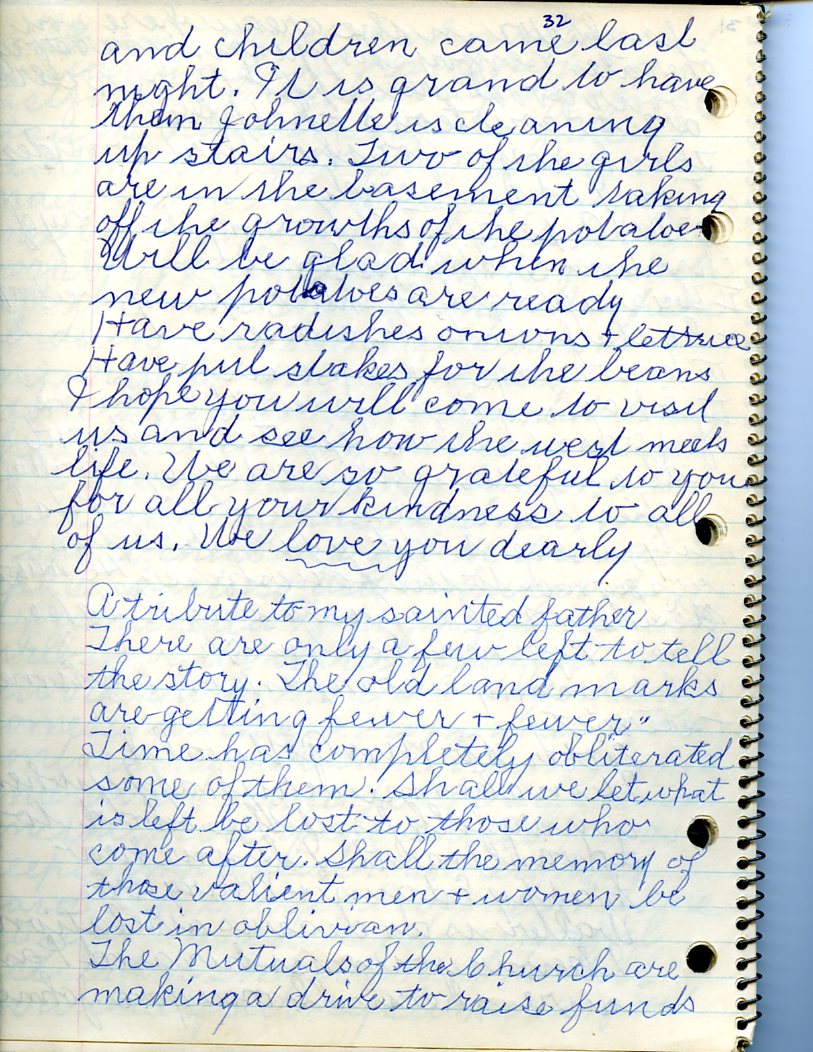 32
and children came last
night. It is grand to have
them Johnelle is cleaning
up stairs. Two of the girls
are in the basement taking
off the growths of the potatoes
Will be glad when the
new potatoes are ready
Have radishes onions + lettuce
Have put stakes for the beans
I hope you will come to visit
us and see how the west meets
life. We are so grateful to you
for all your kindness to all
of us. We love you dearly
A tribute to my sainted father
There are only a few left to tell
the story. The old land marks
are getting fewer + fewer"
Time has completely obliterated
some of them. Shall we let what
is left be lost to those who
come after. Shall the memory of
those valient men + women be
lost in oblivian.
The Mutuals of the Church are
making a drive to raise funds